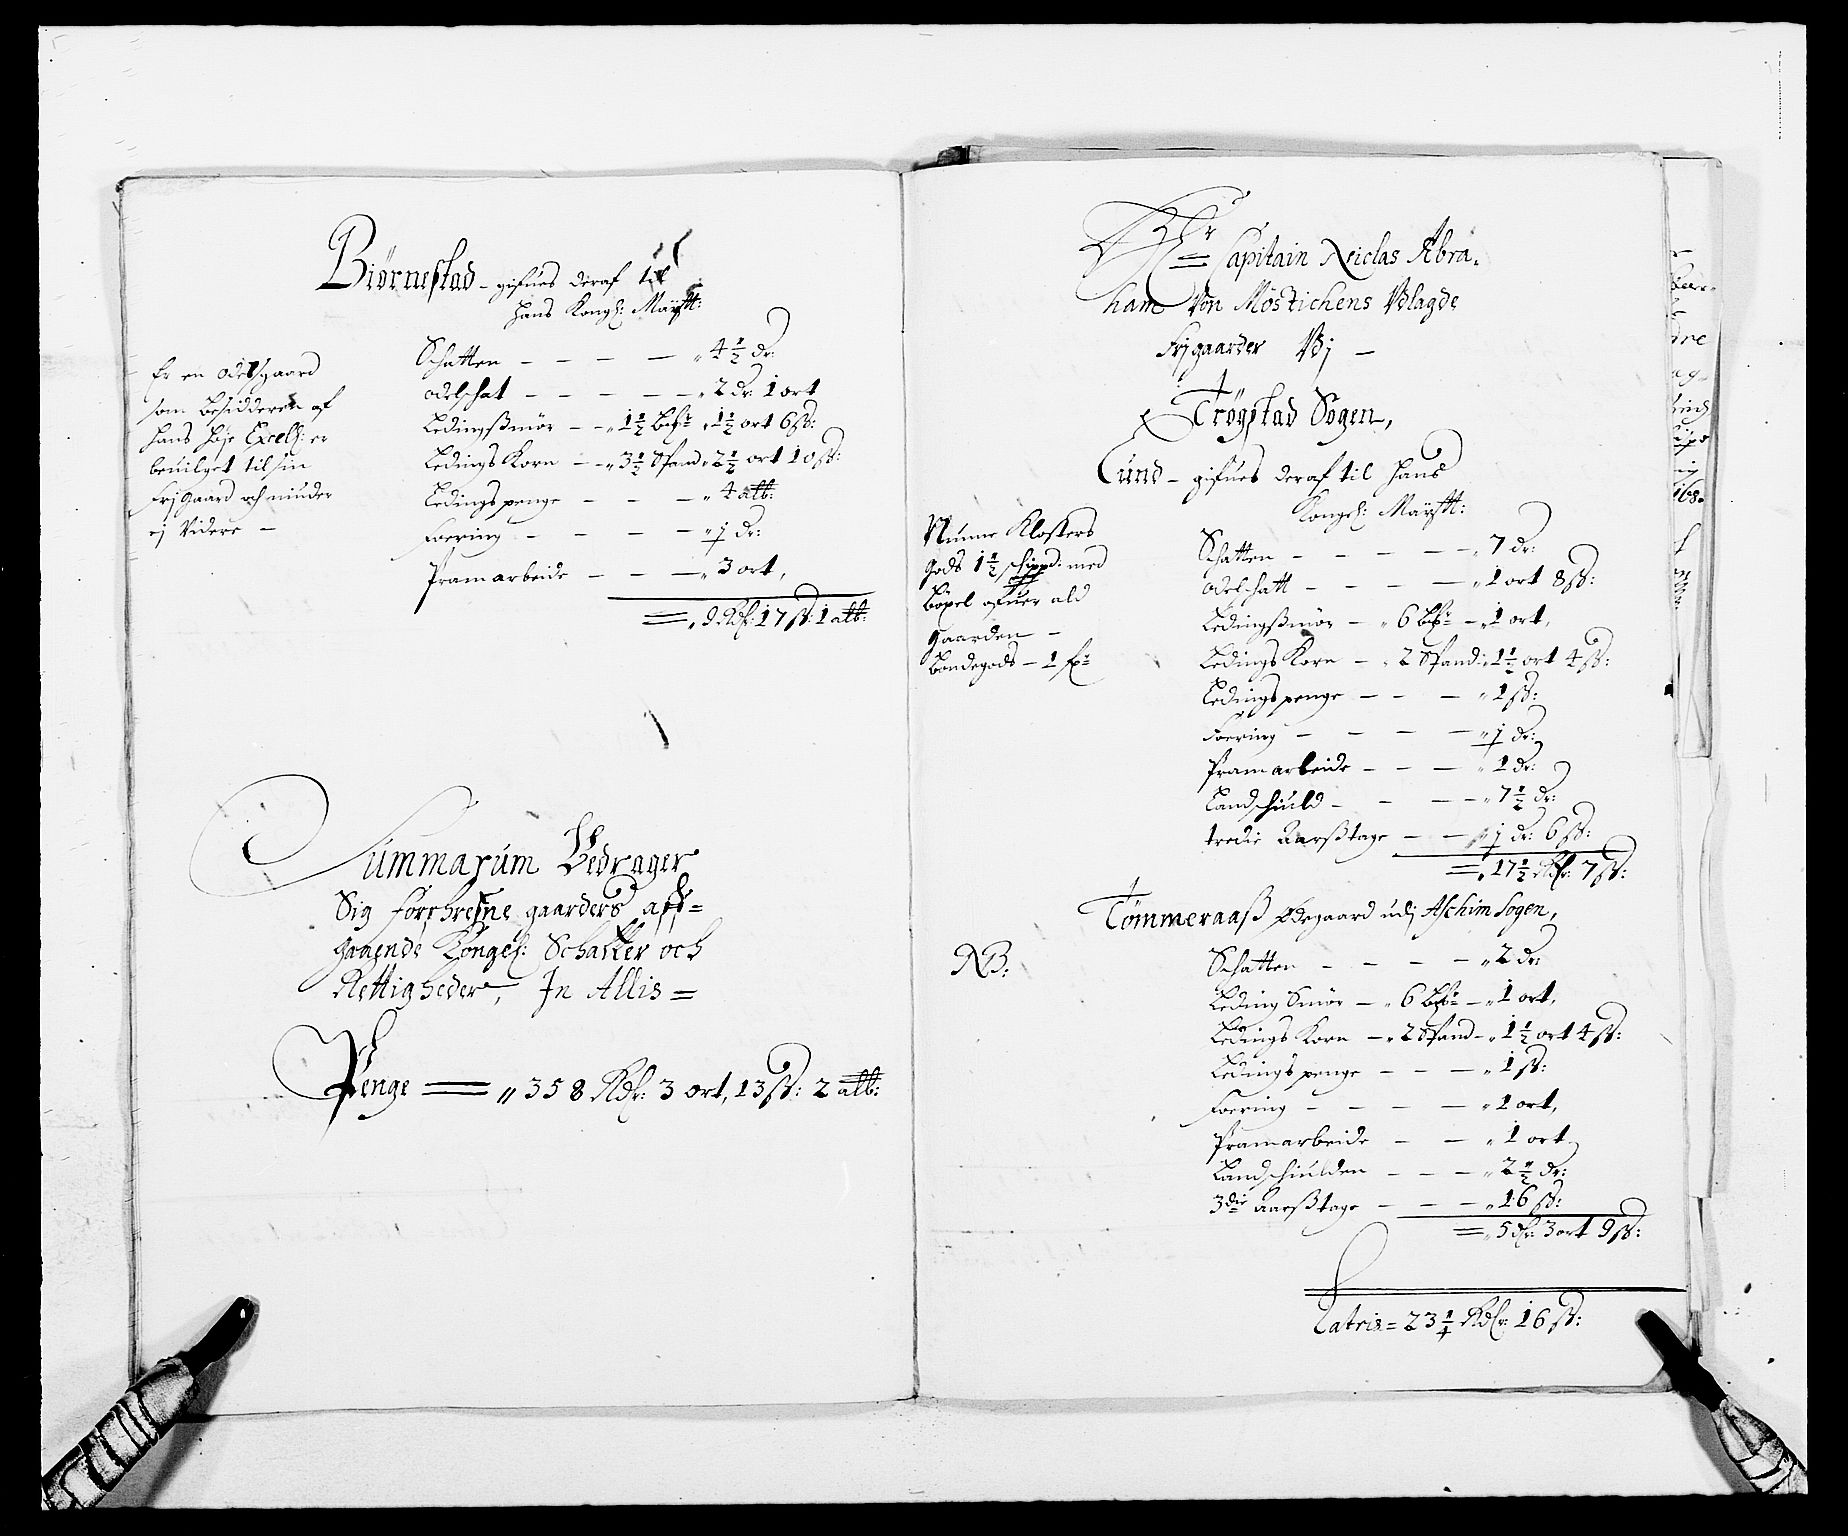 Biørnestad - gifues deraf til
hans Kongl: Maÿtt:
Er en odelsgaard
som besidderen af
hans høje Excell: er
beuilget til sin
Frjgaard och niuder
ej Videre -
Schatten - - - - „ 4 1/2 dr:
odelschat - - - - - „ 2 dr: 1 ort
Ledingßmör - - „ 1 1/2 „ 1 1/2 ort 6 ß:
Ledings Korn - - „ 3 1/2 Spand „ 2 1/2 ort 10 ß:
Ledings penge - - - „ 4 alb:
Foering - - - - „ j dr:
Pramarbeide - - - „ 3 ort,
= „ 9 Rdr: 17 ß: 1 alb:
Summarum Bedrager
Sig forschrefne gaarders aff=
gaaende Kongel: Schatter och
Rettigheder, In Allis =
Penge = „ 358 Rdr: 3 ort, 13 ß: 2 alb:
Hr = Capitain Niclas Abra=
ham Von Møstichens Vdlagde
Frjgaarder Vdj -
Trögstad Sogen,
Lund - gifues deraf til hans
Kongel: Maÿtt:
Nunne Klosters
gods 1 1/2 schippd: med
Böxel ofuer ald
gaarden -
Bondegods - 1
Schatten - - - - - „ 7 dr:
odelschatt - - - - „ 1 ort 8 ß:
Ledingßmör - „ 6 - „ 1 ort,
Ledings Korn - „ 2 Spand „ 1 1/2 ort 4 ß:
Ledings penge - - - „ 1 ß:
Foering - - - - - „ j dr:
Pramarbeide - - - „ 1 dr:
Landschiuld - - - - „ 7 1/2 dr:
tredie Aarßtage - - „ j dr: 6 ß:
= „ 17 1/2 Rdr: 7 ß:
Tömmeraaß Ødegaard udj Aschim Sogen,
NB:
Schatten - - - - „ 2 dr:
Leding Smör - „ 6 - „ 1 ort,
Ledings Korn - „ 2 Spand - „ 1 1/2 ort 4 ß:
Ledings penge - - - „ 1 ß:
Foering - - - - „ 1 ort,
Pramarbeide - - „ 1 ort
Landschiulden - - - „ 2 1/2 dr:
3die Aarßtage - - - „ 16 ß:
= „ 5 dr: 3 ort 9 ß:
Lateris = 23 1/4 Rdr: 16 ß: